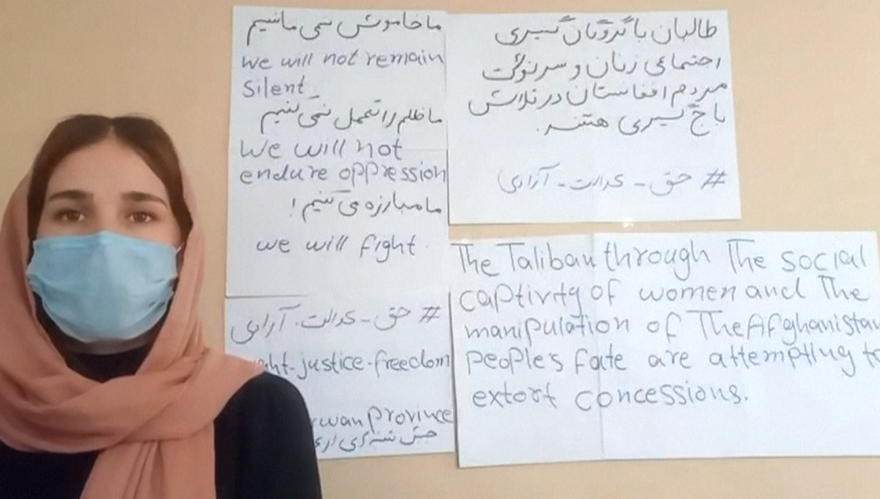 ما خاموش نمی مانیم
we will not remain
Silent
ما ظلم را تحمل نمی کنیم
We will not
endure oppression
ما مبارزه می کنیم !
we will fight.
# حق - عدالت - آزادی
justice-freedom
Province
طالبان با گروگان گیری
اجتماعی زنان و سرنوشت
مردم افغانستان در تلاش
باج گیری هستند.
# حق - عدالت - آزادی
The Taliban through The social
captivity of women and The
manipulation of The Afghanistan
people's fate are attempting to
extort concessions.